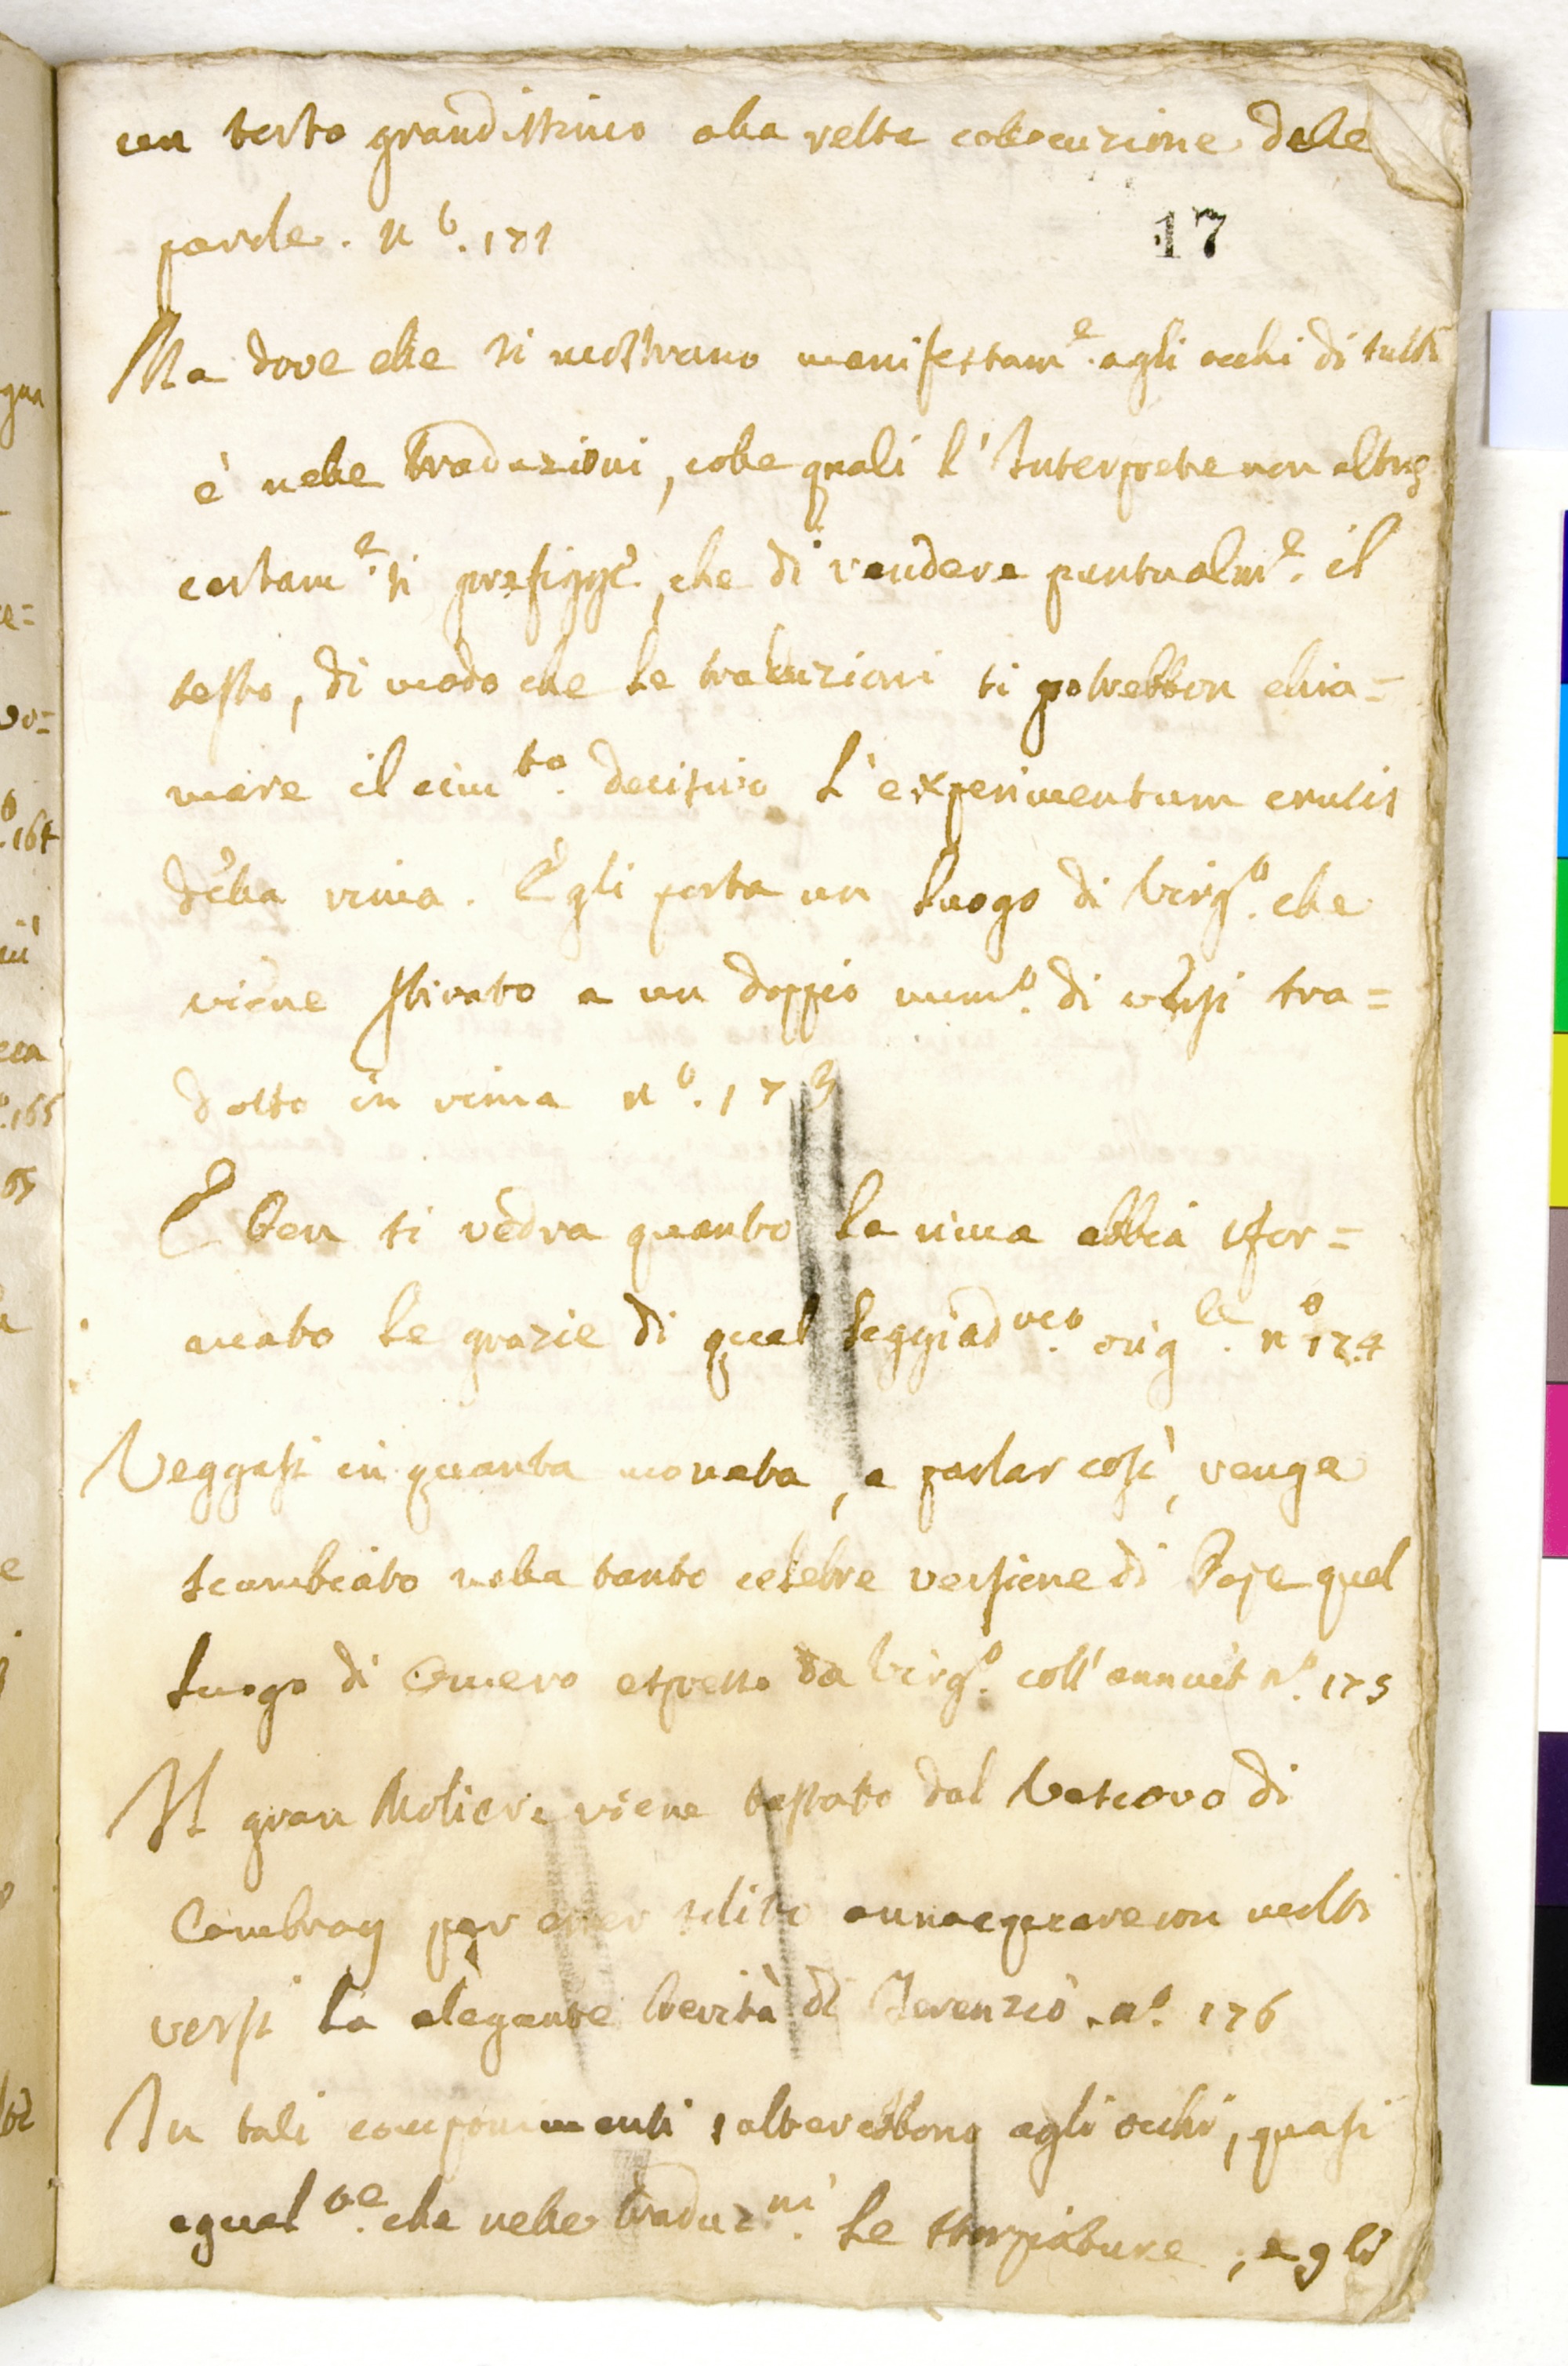 un torto grandissimo alla retta collocuzione delle
parole. n.º 171
17
Ma dove elle si mostrano manifestam.e agli occhi di tutti
è nelle traduzioni, colle quali l'Interprete non altro
certam.e si prefigge, che di rendere puntualm.e il
testo, di modo che le traduzioni si potrebbon chia=
mare il cim.to decisivo L'experimentum crucis
della rima. Egli porta un luogo di Virg.º che
viene stirato a un doppio num.º di versi tra=
dotto in rima n.º 173
E ben si vedra quanto la rima abbia sfor=
mato le grazie di quel leggiad.mo orig.le nº 174
Veggasi in quanta moneta, a parlar così, venga
scambiato nella tanto celebre versione di Pope quel
luogo di Omero espresso da Virg.º coll'annuit n.º 175
Il gran Moliere viene tassato dal Vescovo di
Cambray per esser solito annacquare con molti
versi la elegante brevità di Terenzio. n.º 176
In tali componimenti salterebbono agli occhi, quasi
egual.te che nelle traduz.ni le storpiature, e gli